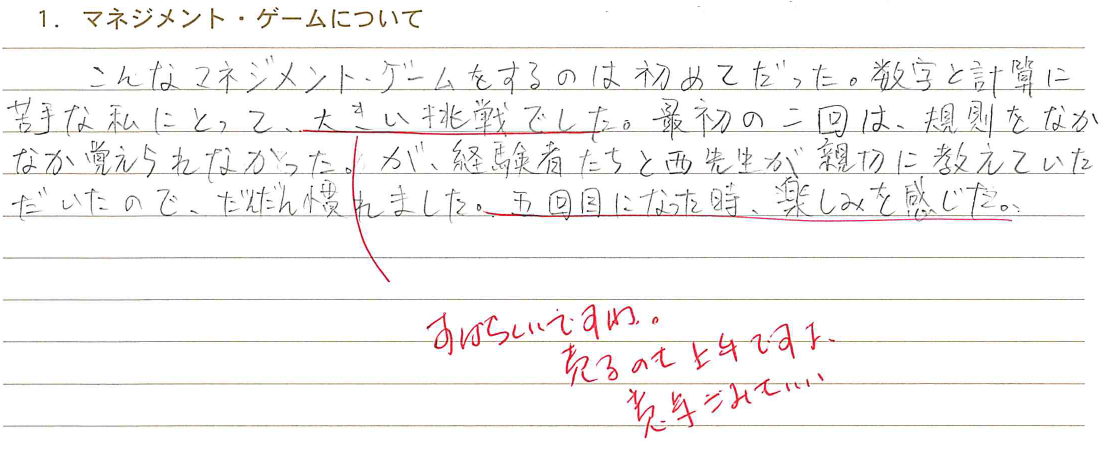 1. マネジメント・ゲームについて
こんなマネジメント・ゲームをするのは初めてだった。数字と計算に
苦手な私にとって、大きい挑戦でした。最初の二回は、規則をなか
なか覚えられなかった。が、経験者たちと西先生が親切に教えていた
だいたので、だんだん慣れました。五回目になった時、楽しみを感じた。
すばらしいですね。
売るのも上手ですよ、